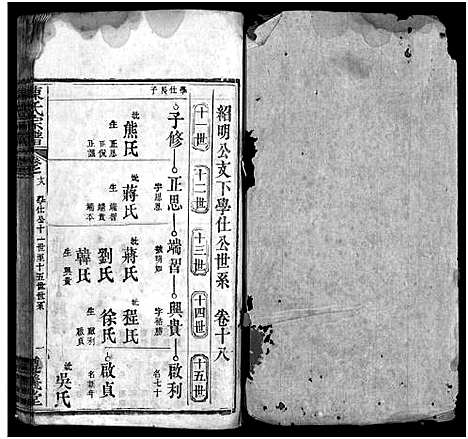 紹明公支下學仕公世系 卷十八
十一世 十二世 十三世 十四世 十五世
學仕長子
子修 正思 端習 興貴 啟利
字思恩
號明如
字裕勝
名七十
妣熊氏
生 正思 正侃 正謳
妣蔣氏
生 端習 端貴 端本
妣蔣氏
劉氏
韓氏
生 興貴
妣程氏
徐氏
生 啟利 啟貞
啟貞
妣吳氏
陳氏宗譜 卷之十八 學仕公十一世至十五世世系 一